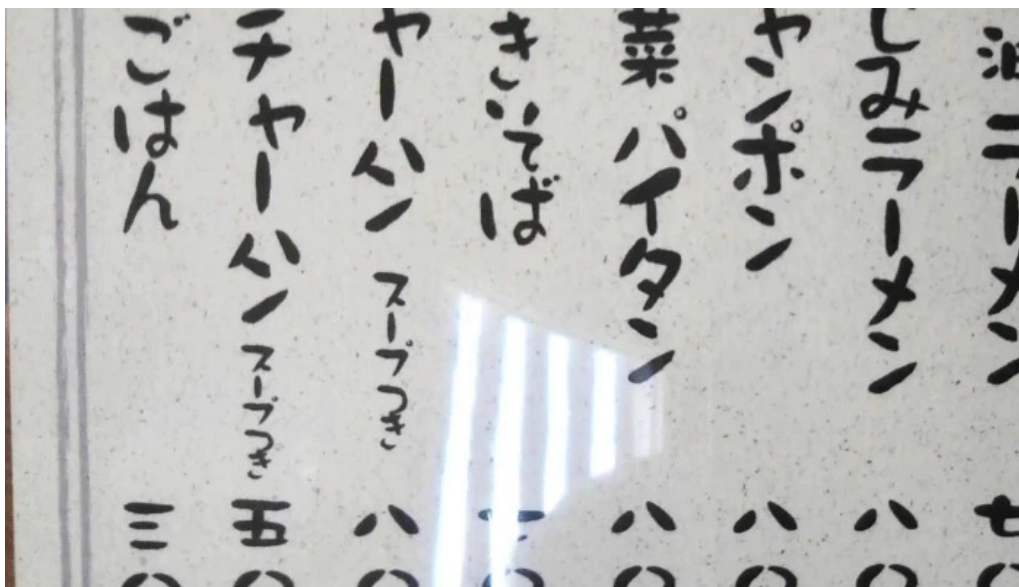 油ラーメン 七〇
じみラーメン 八〇
ャンポン 八〇
菜パイタン 八〇
きそば
ャーハン スープつき 八〇
チャーハン スープつき 五〇
ごはん 三〇